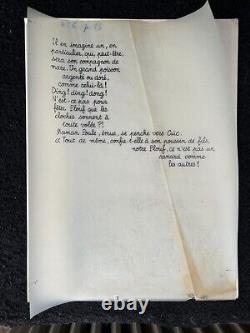 Il en imagine un, en
particulier, qui, peut-être,
sera son compagnon de
mare. Un grand poisson
argenté ou doré,
comme celui-là!
Ding! ding! dong!
N'est-ce pas pour
fêter Plouf que les
cloches sonnent à
toute volée?!
Maman Poule, émue, se penche vers Ouic.
" Tout de même, confie-t-elle à son poussin de fils,
notre Plouf, ce n'est pas un
canard comme
les autres!